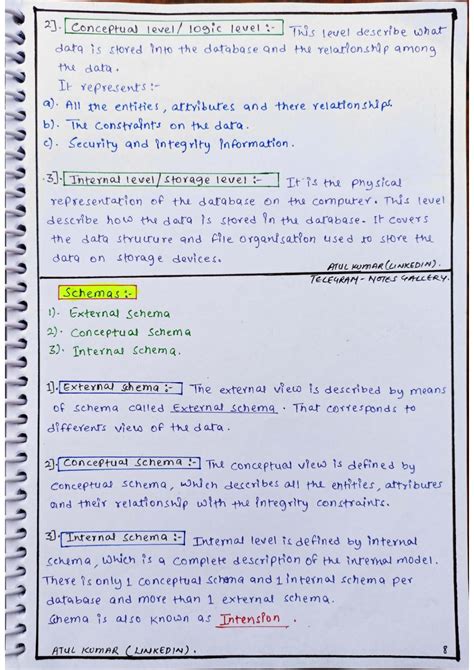 2]. Conceptual level/ logic level :- This level describe what
data is stored into the database and the relationship among
the data.
It represents :-
a). All the entities, attributes and there relationships.
b). The constraints on the data.
c). Security and integrity information.
3]. Internal level/storage level :- It is the physical
representation of the database on the computer. This level
describe how the data is stored in the database. It covers
the data structure and file organisation used to store the
data on storage devices.
ATUL KUMAR (LINKEDIN).
TELEGRAM - NOTES GALLERY.
Schemas :-
1). External Schema
2). Conceptual Schema
3). Internal Schema.
1]. External shema :- The external view is described by means
of schema called External schema. That corresponds to
differents view of the data.
2]. Conceptual schema :- The conceptual view is defined by
conceptual schema, which describes all the entities, attributes
and their relationship with the integrity constraints.
3]. Internal schema :- Internal level is defined by internal
schema, which is a complete description of the internal model.
There is only 1 conceptual schema and 1 internal schema per
database and more than 1 external schema.
Shema is also known as Intension.
ATUL KUMAR (LINKEDIN).
8